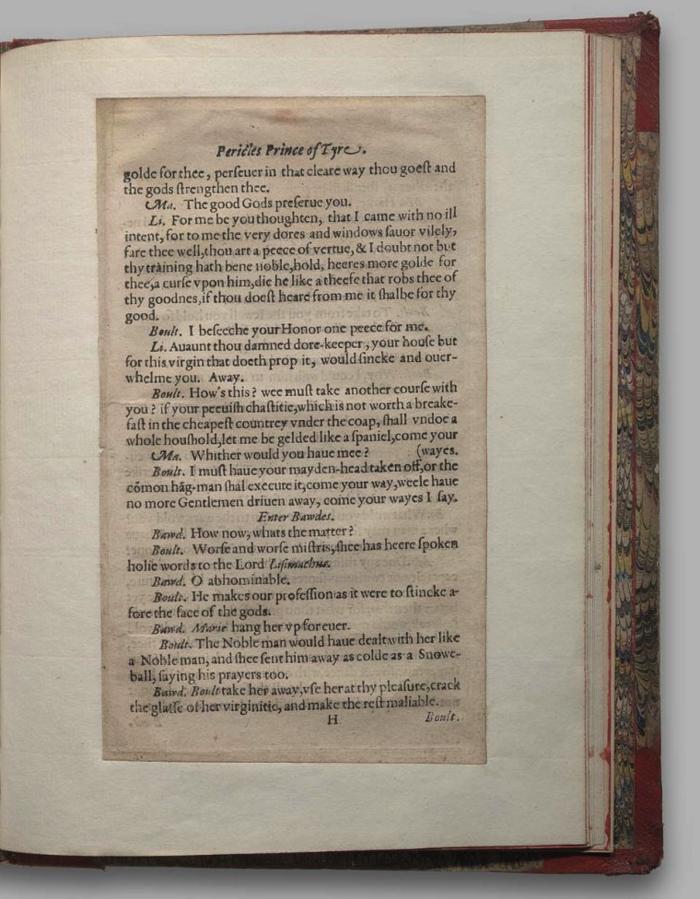 Pericles Prince of Tyre.
golde for thee, perſeuer in that cleare way thou goeſt and
the gods ſtrengthen thee.
Ma. The good Gods preſerue you.
Li. For me be you thoughten, that I came with no ill
intent, for to me the very dores and windows ſauor vilely,
fare thee well, thou art a peece of vertue, & I doubt not but
thy training hath bene noble, hold, heeres more golde for
thee, a curſe vpon him, die he like a theefe that robs thee of
thy goodnes, if thou doeſt heare from me it ſhalbe for thy
good.
Boult. I beſeeche your Honor one peece for me.
Li. Auaunt thou damned dore-keeper, your houſe but
for this virgin that doeth prop it, would ſincke and ouer-
whelme you. Away.
Boult. How's this? wee muſt take another courſe with
you? if your peeuiſh chaſtitie, which is not worth a breake-
faſt in the cheapeſt countrey vnder the coap, ſhall vndoe a
whole houſhold, let me be gelded like a ſpaniel, come your
Ma. Whither would you haue mee? (wayes.
Boult. I muſt haue your mayden-head taken off, or the
cõmon hãg-man ſhal execute it, come your way, weele haue
no more Gentlemen driuen away, come your wayes I ſay.
Enter Bawdes.
Bawd. How now, whats the matter?
Boult. Worſe and worſe miſtris, ſhee has heere ſpoken
holie words to the Lord Liſimachus.
Bawd. O abhominable.
Boult. He makes our profeſſion as it were to ſtincke a-
fore the face of the gods.
Bawd. Marie hang her vp for euer.
Boult. The Noble man would haue dealt with her like
a Noble man, and ſhee ſent him away as colde as a Snowe-
ball, ſaying his prayers too.
Bawd. Boult take her away, vſe her at thy pleaſure, crack
the glaſſe of her virginitie, and make the reſt maliable.
H Boult.